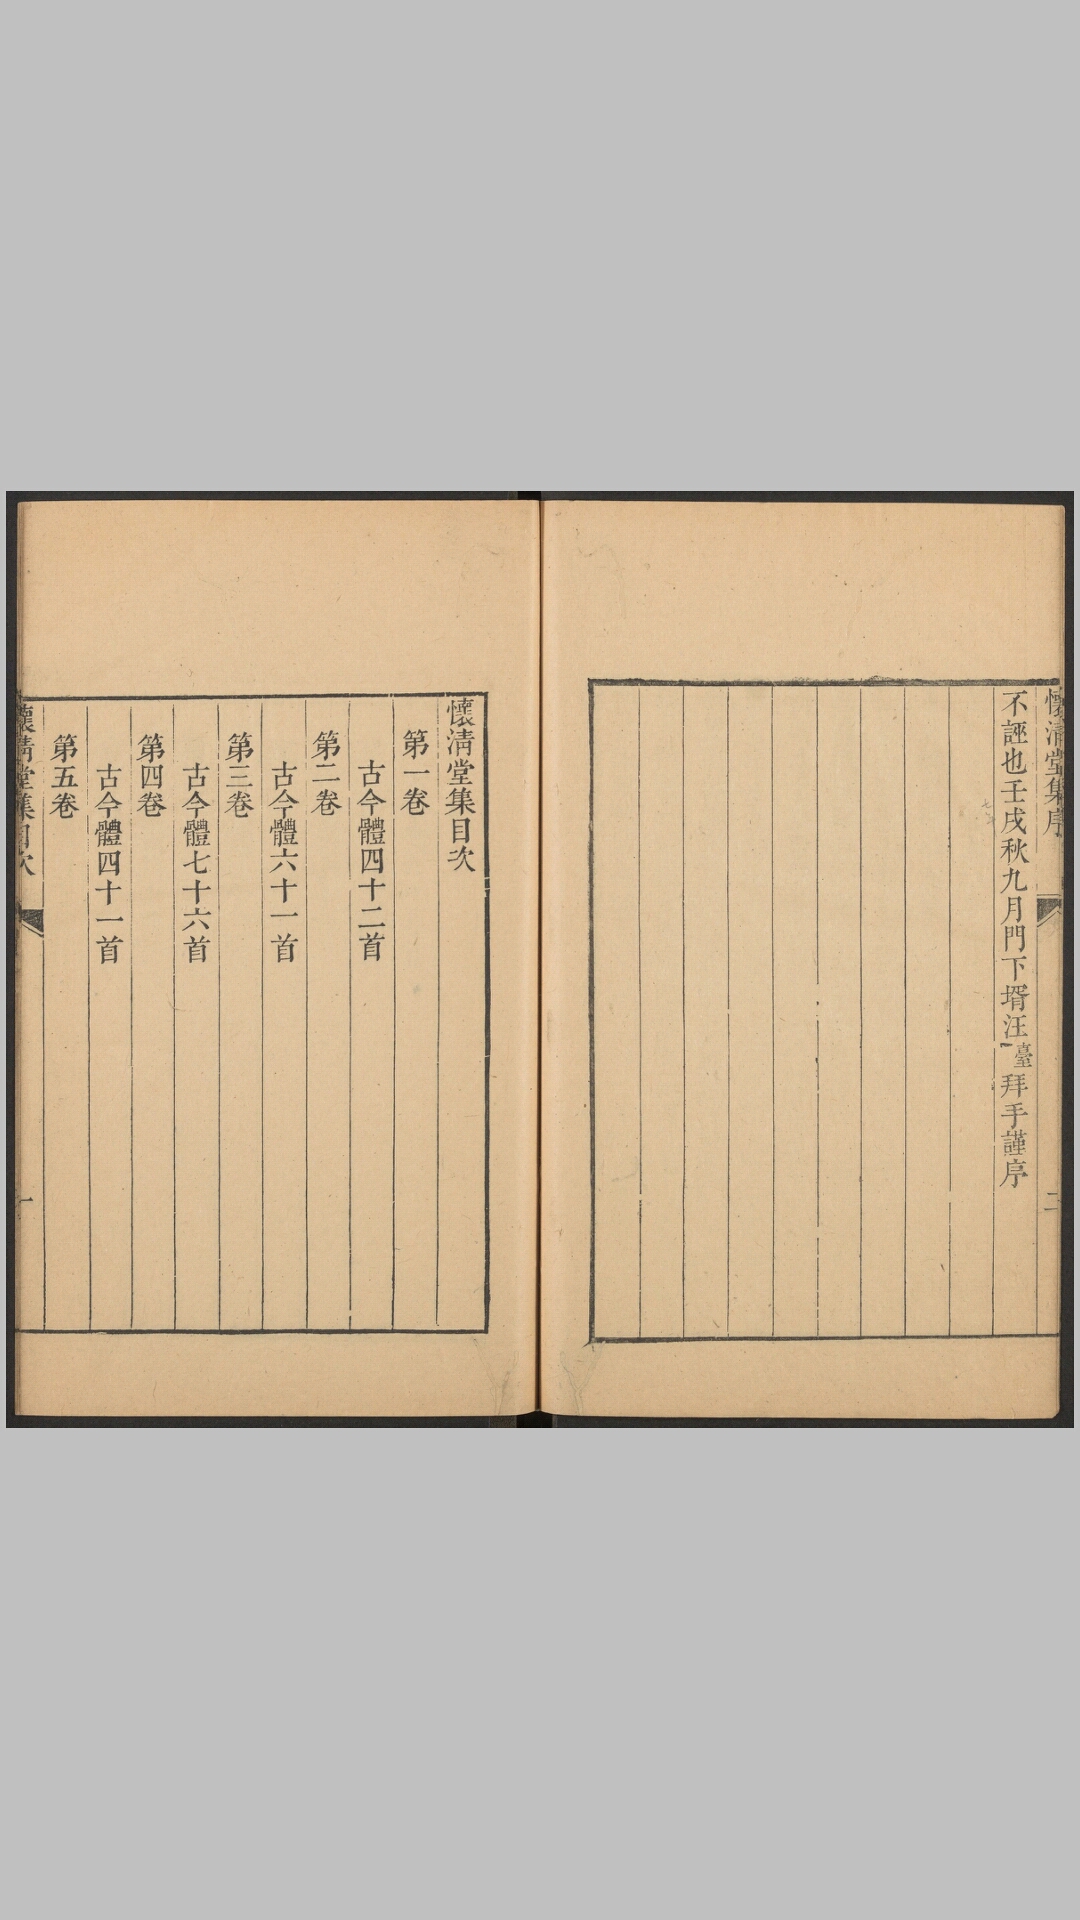 懷清堂集序
二
不誣也壬戌秋九月門下壻汪臺拜手謹序
懷清堂集目次
第一卷
古今體四十二首
第二卷
古今體六十一首
第三卷
古今體七十六首
第四卷
古今體四十一首
第五卷
懷清堂集目次
一